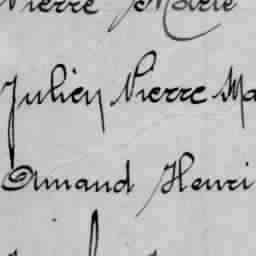 Pierre Marie
Julien Pierre Ma
Armand Henri